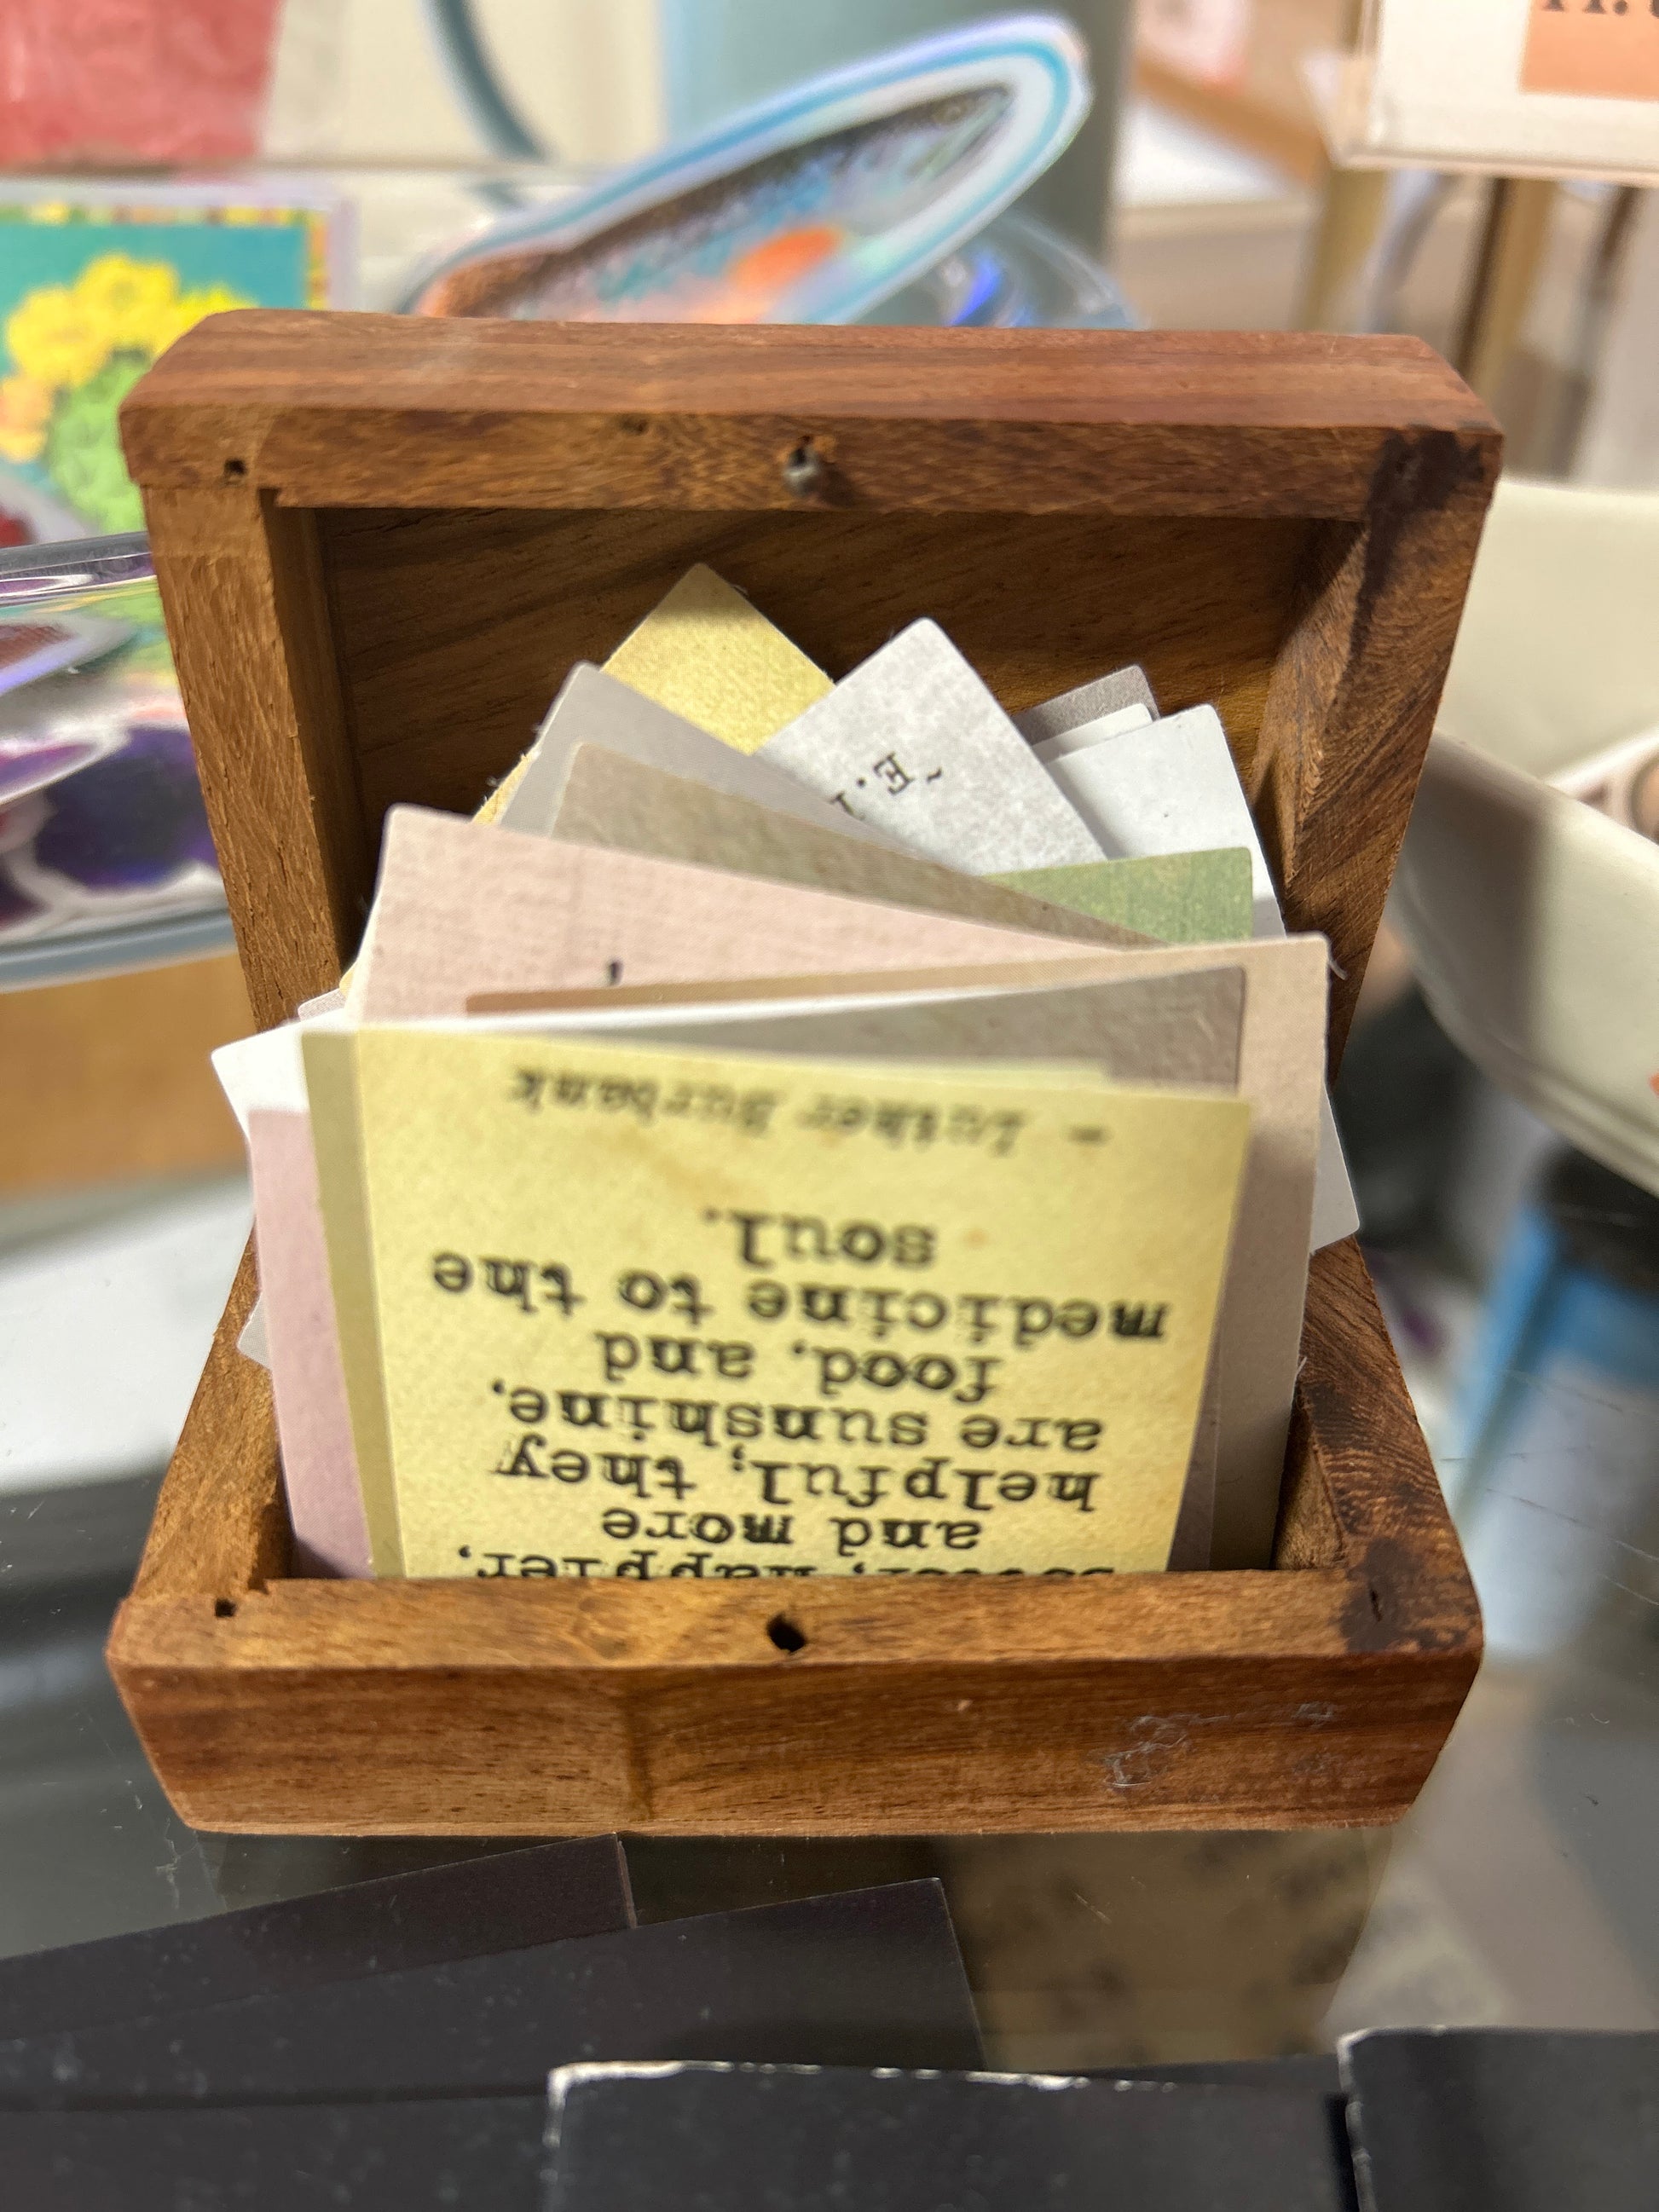 happier,
and more
helpful; they
are sunshine,
food, and
medicine to the
soul.
- Luther Burbank
~E.